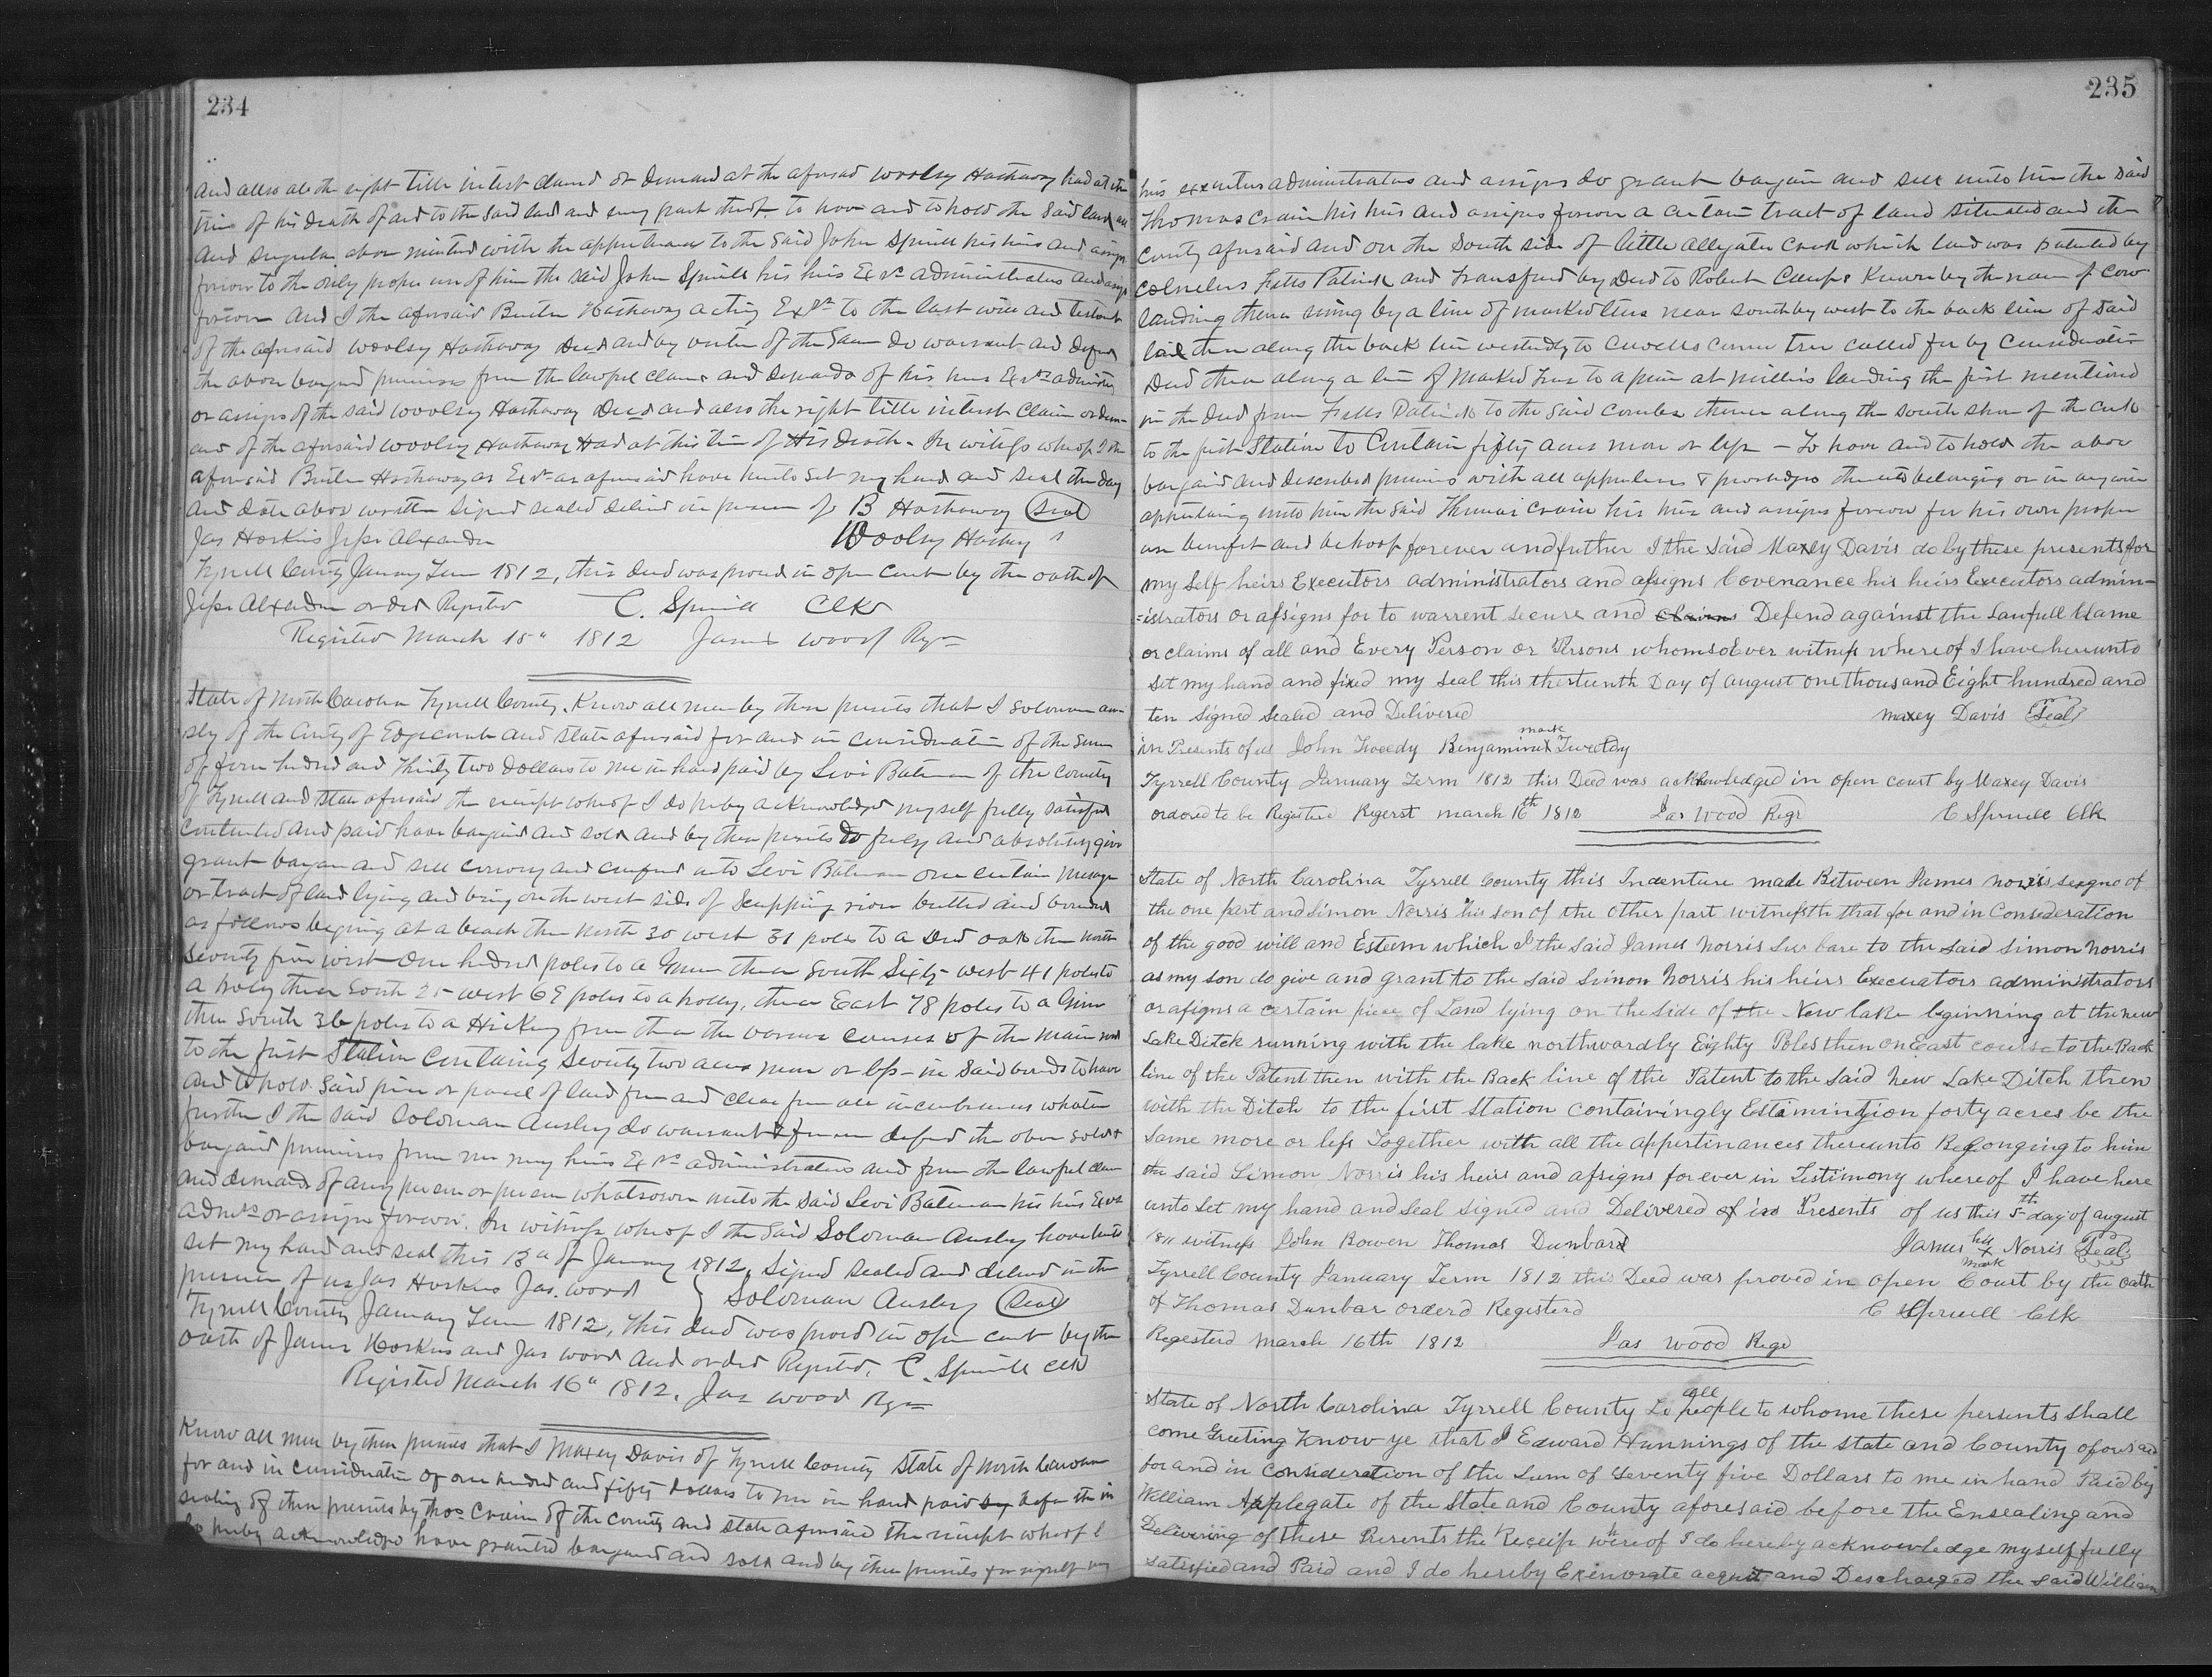 234
and also all the right title intrest claim or demand at the aforsad woolsy Hathaway had at the
time of his Death of and to the said land and evry part therof. to have and to hold the said land all
and singular abov mentind with the appurtenances to the said John Spruill his hirs and assigns
forever to the only proper use of him the said John Spruill his hirs Exrs administrators and assigns
forever And I the aforsaid Burton Hathaway acting Exr to the last will and testament
of the aforsaid woolsy Hathaway Decd and by virtue of the same do warrant and defend
the above bargand premises from the lawful claims and demands of his hirs Exrs adminis
or assigns of the said woolsy Hathaway Decd and also the right title intrest claim or dem-
and of the aforsaid woolsy Hathaway Had at this time of His Death. In witness wherof I the
aforsaid Hathaway as Exr as aforsaid have hereunto set my hand and seal the day
and date above written signed sealed delivd in presence of B Hathaway (Seal)
Jas Hoskins Jesse Alexander Woolsy Hathwy
Tyrrell County January Term 1812, this deed was provd in open court by the oath of
Jesse Alexander orderd Registerd C. Spruill Clk
Registerd March 15" 1812 James Wood Regr
State of North Carolina Tyrrell County. Know all men by these presents that I Soloman an-
sly of the County of Edgecomb and state aforsaid for and in consideration of the sum
of four hundred and thirty two Dollars to me in hand paid by Levi Bateman of the county
of Tyrrell and state aforsaid the receipt wherof I do hereby acknowledge myself fully satisfied
contented and paid have bargaind and sold and by these presents do freely and absolutely give
grant bargan and sell convey and confirm unto Levi Bateman one certain mesage
or tract of land lying and being on the west side of Scuppering river butted and bounded
as follows begining at a beach then North 30 west 31 poles to a Red oak then north
seventy five west One hundred poles to a Gum then South Sixty west 41 poles to
a holy then South 25 west 69 poles to a holly, then East 78 poles to a Gum
then South 36 poles to a Hickory from then the various courses of the main road
to the first Station Containing Seventy two acres more or less in said bounds to have
and to hold said peice or parcel of land free and clear from all incumbrances whatever
further I the said Soloman Ansley do warrant & forever defend the above sold &
bargaind premises from me my heirs Exrs administrators and from the lawful claim
and demands of any person or persons whatsoever unto the said Levi Bateman his hirs Exrs
admrs or assigns forever. In witness wherof I the said Soloman Ansley have hereunto
set my hand and seal this 13th of January 1812, Signed sealed and delivd in the
presence of us Jas Hoskins Jas. Wood } Soloman Ansley (Seal)
Tyrrell County January Term 1812, This deed was provd in open court by the
oath of James Hoskins and Jas wood and orderd Registerd. C. Spruill Clk
Registed March 16" 1812. Jas Wood Regr
Know all men by these presents that I Maxey Davis of Tyrrell County State of North Carolina
for and in consideration of one hundred and fifty Dollars to me in hand paid by before the in
sealing of these presents by Thos Crain of the county and state aforsaid the receipt wherof I
do hereby acknowledge have granted bargaind and sold and by these presents for myself my
235
his executors administrators and assigns do grant bargain and sell unto him the said
Thomas Crain his hirs and assigns forever a certain tract of land situated and the
county aforsaid and on the South side of little allegator creek which land was patented by
Cornelius Fitts Patrick and transferd by Deed to Robert known by the name of Cow
landing thence runing by a line of marked trees near south by west to the back line of said
then along the back line westerdly to corner tree called for by Consideration
Deed then along a line of marked trees to a pine at millers landing the first mentiond
in the deed from Fitts Patrick to the said thence along the south shore of the creek
to the first Station to Contain fifty acres more or less - To have and to hold the above
bargaind and described premises with all appurtenances & priviledges thereunto belonging or in any wise
appertaing unto him the said Thomas Crain his hirs and assigns forever for his own proper
use benefit and behoof forever and futher I the said Maxey Davis do by these presents for
my self heirs Executors administrators and assigns Covenance his heirs Executors admin-
=istrators or assigns for to warrent secure and claims Defend against the Lawfull Clame
or claims of all and Every Person or Persons whomsoEver witness where of I have hereunto
set my hand and fixed my seal this thirteenth Day of august one thousand Eight hundred and
ten Signed Sealed and Delivered maxey Davis (Seal)
in Presents of us John Tweedy Benjamin X Tweedy
mark
Tyrrell County January Term 1812 this Deed was acknowledged in open court by Maxey Davis
ordored to be Registerd Regerst march 16th 1812 Jas Wood Regr C Spruill Clk
State of North Carolina Tyrrell County this Indenture made Between James norris seigno of
the one part and Simon Norris his son of the other part witnessth that for and in Consederation
of the good will and Esteem which I the said James Norris bare to the said Simon Norris
as my son do give and grant to the said Simon Norris his heirs Execuators administrators
or assigns a certain piece of Land lying on the side of the New lake beginning at the new
Lake Ditch running with the lake northwardly Eighty Poles then on East course to the Back
line of the Patent then with the Back line of the Patent to the said New Lake Ditch then
with the Ditch to the first Station containingly Estimingion forty acres be the
same more or less Together with all the appertinances thereunto Belonging to him
the said Simon Norris his heirs and assigns forever in Testimony whereof I have here
unto set my hand and seal signed and Delivered of in Presents of us this 5th day of august
1811 witness John Bowen Thomas Dunbar James his X mark Norris (Seal)
Tyrrell County January Term 1812 this Deed was proved in open Court by the oath
of Thomas Dunbar orderd Registerd C Spruell Clk
Regesterd march 16th 1812 Jas Wood Regr
State of North Carolina Tyrrell County To all people to whome these persents Shall
come Greeting Know ye that I Edward Hunnings of the State and County aforesaid
for and in Consideration of the Sum of Seventy five Dollars to me in hand Paid by
William Applegate of the State and County aforesaid before the Ensealing and
Delivering of these Presents the Receip whereof I do hereby acknowledge myself fully
satesfied and Paid and I do hereby Exenorate acquit and Descharged the said William